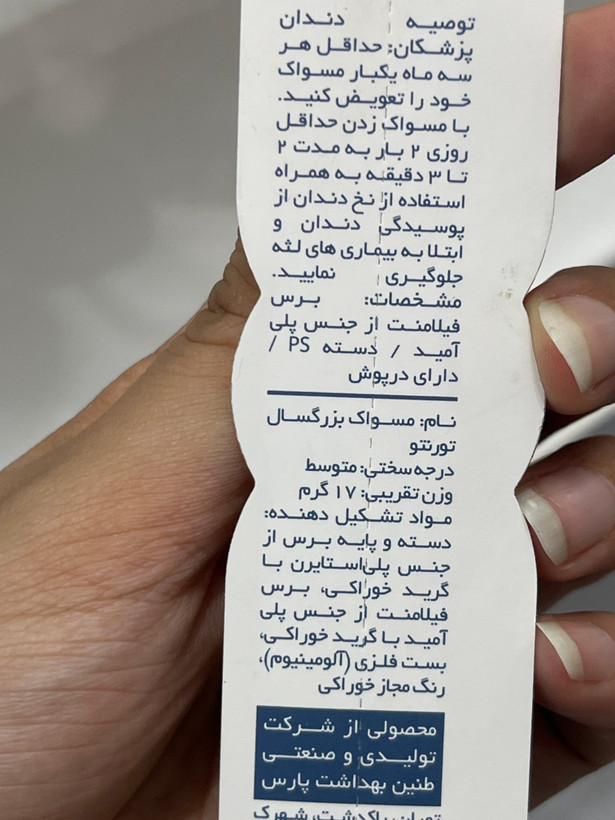 توصیه دندان
پزشکان: حداقل هر
سه ماه یکبار مسواک
خود را تعویض کنید.
با مسواک زدن حداقل
روزی ۲ بار به مدت ۲
تا ۳ دقیقه به همراه
استفاده از نخ دندان از
پوسیدگی دندان و
ابتلا به بیماری های لثه
جلوگیری نمایید.
مشخصات: برس
فیلامنت از جنس پلی
آمید / دسته PS /
دارای درپوش
نام: مسواک بزرگسال
تورنتو
درجه سختی: متوسط
وزن تقریبی: ۱۷ گرم
مواد تشکیل دهنده:
دسته و پایه برس از
جنس پلی‌استایرن با
گرید خوراکی، برس
فیلامنت از جنس پلی
آمید با گرید خوراکی،
بست فلزی (آلومینیوم)،
رنگ مجاز خوراکی
محصولی از شرکت
تولیدی و صنعتی
طنین بهداشت پارس
تهران، پاکدشت، شهرک